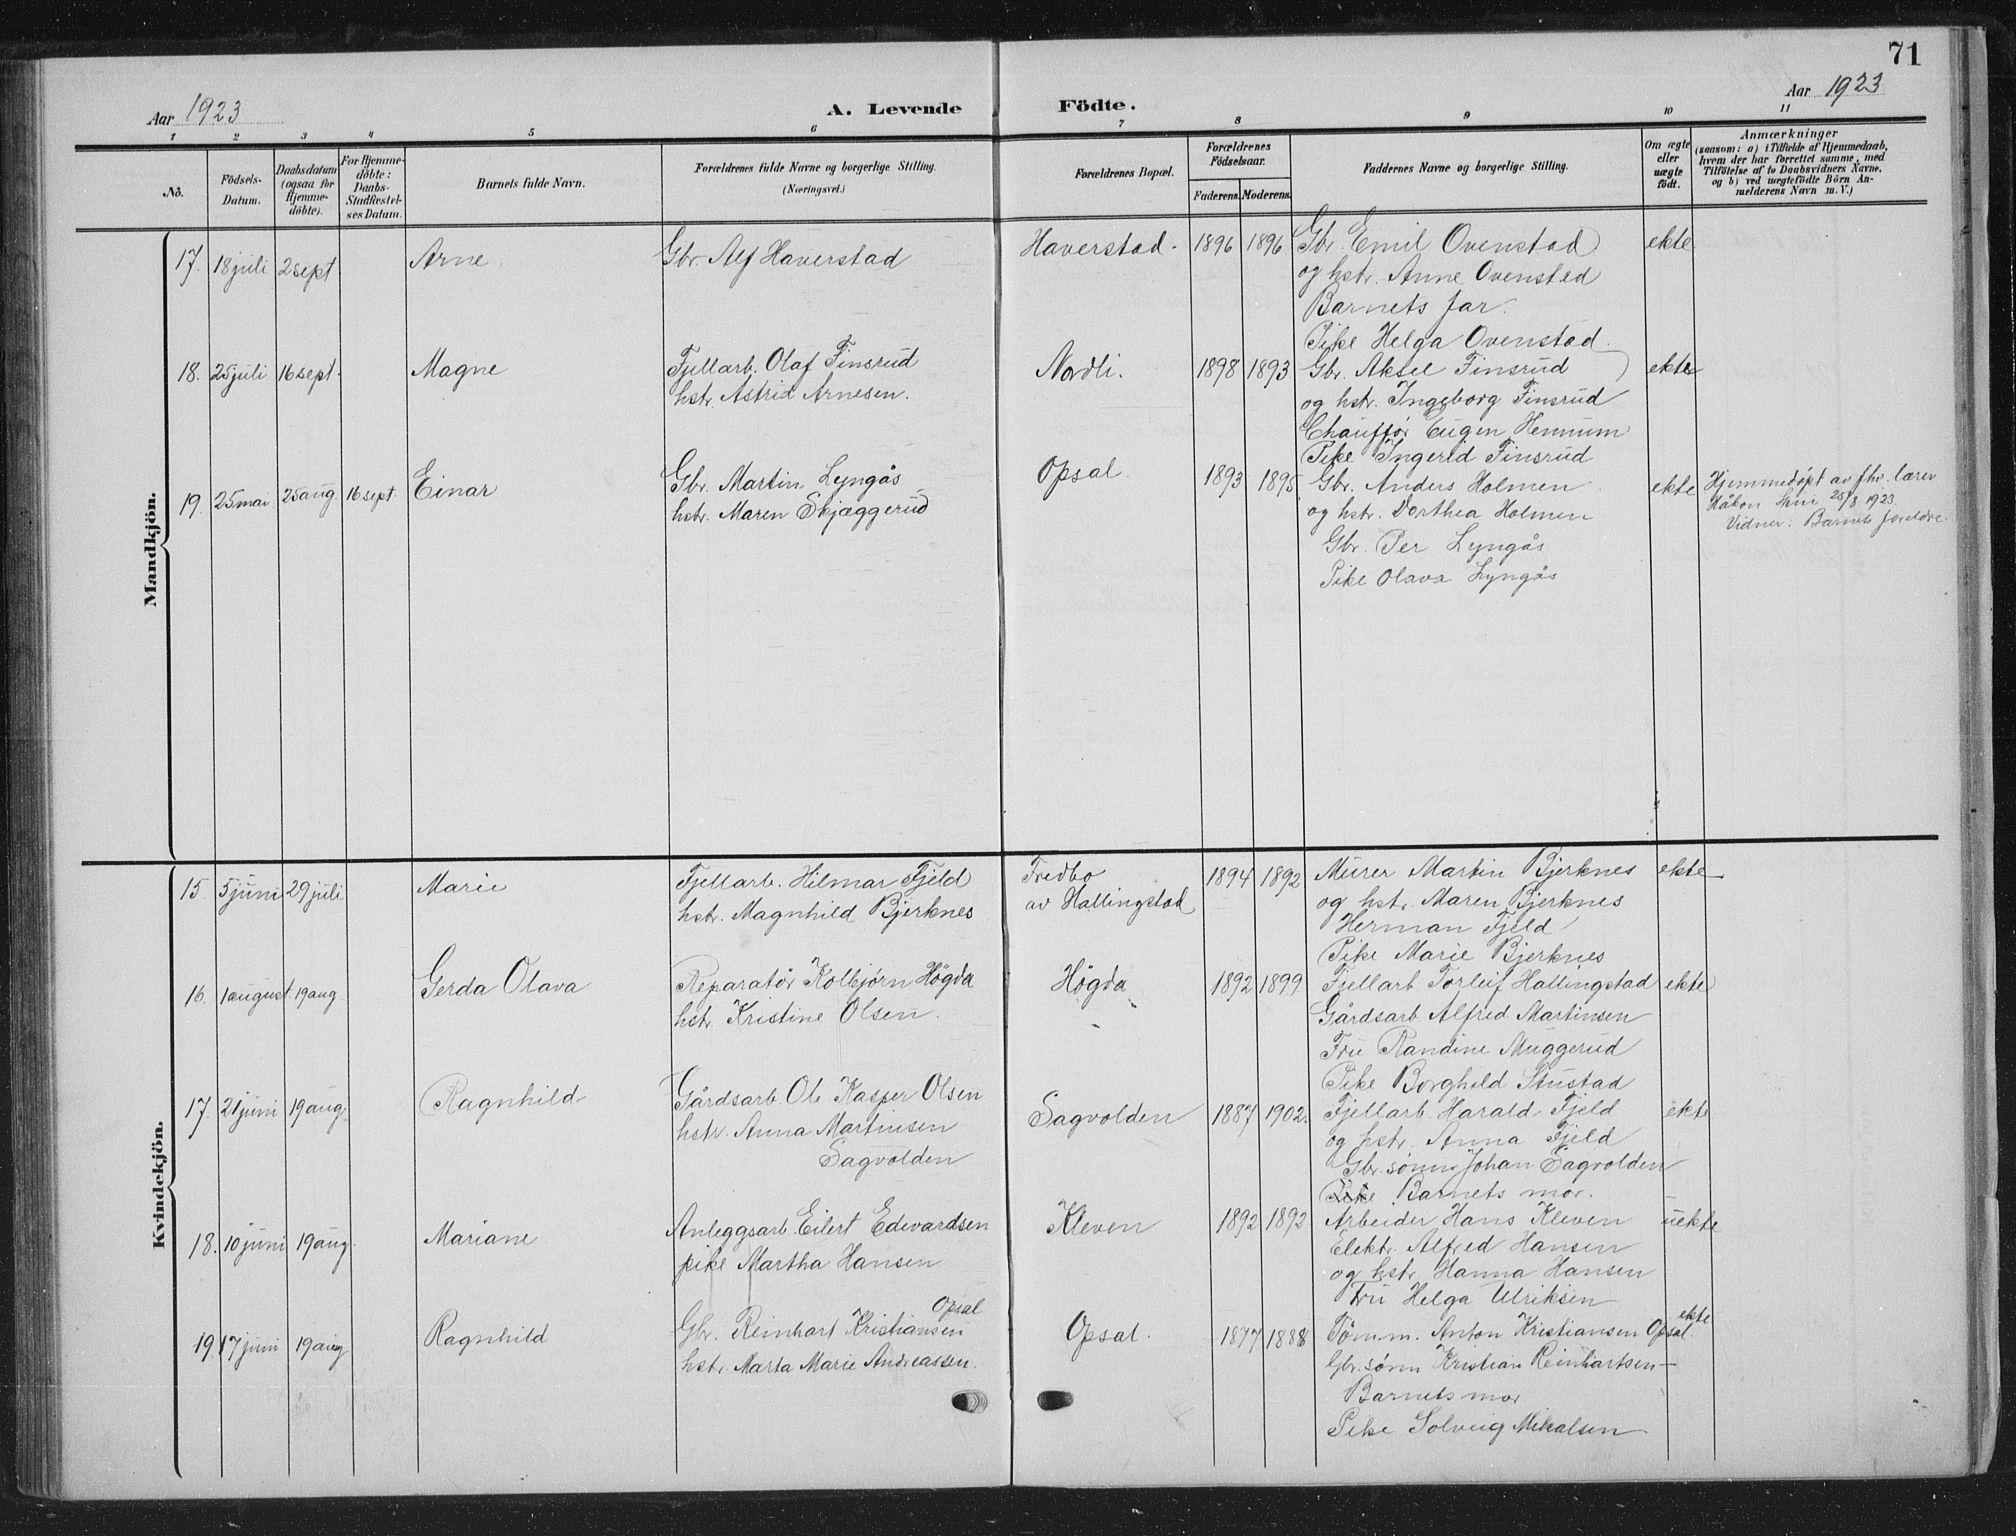 71
Aar 1923
A. Levende Födte.
Aar 1923
1 2 3 4 5 6 7 8 9 10 11
No.
Födsels-Datum.
Daabsdatum (ogsaa for Hjemme-döbte).
For Hjemme-döbte: Daabs-Stadfæstel-ses Datum.
Barnets fulde Navn.
Forældrenes fulde Navne og borgerlige Stilling.
(Næringsvei.)
Forældrenes Bopæl.
Forældrenes Födselsaar.
Faderens. Moderens.
Faddernes Navne og borgerlige Stilling.
Om ægte eller uægte födt.
Anmærkninger
(saasom: a) i Tilfælde af Hjemmedaab,
hvem der har forrettet samme, med
Tilföielse af to Daabsvidners Navne,
og b) ved uægtefödte Börn An-
melderens Navn m. V.)
Mandkjön.
17. 18 juli 2 sept Arne. Gbr. Alf Haverstad Haverstad. 1896 1896 Gbr. Emil Ovenstad ekte
og hstr. Anne Ovenstad
Barnets far.
Pike Helga Ovenstad.
18. 25 juli 16 sept. Magne Fjellarb. Olaf Finsrud Nordli. 1898 1893 Gbr. Aksel Finsrud ekte
hstr. Astrid Arnesen.
og hstr. Ingeborg Finsrud
Chauffør Eugen Hennum
Pike Ingerid Finsrud
19. 25 mai 25 aug. 16 sept. Einar Gbr. Martin Lyngås Opsal. 1893 1895 Gbr. Anders Holmen ekte Hjemmedøpt av fhv. lærer
hstr. Maren Skjæggerud
og hstr. Dorthea Holmen
Håkon 25/8 1923.
Vidner: Barnets foreldre.
Gbr. Per Lyngås
Pike Olava Lyngås
Kvindekjön.
15. 5 juni 29 juli Marie Fjellarb. Hilmar Fjeld Fredbo 1894 1892 Murer Martin Bjerknes ekte
hstr. Magnhild Bjerknes av Hallingstad og hstr. Maren Bjerknes
Herman Fjeld
Pike Marie Bjerknes
16. 1 august 19 aug Gerda Olava Reparatør Kolbjørn Högda Högda 1892 1899. Fjellarb Torleif Hallingstad ekte
hstr. Kristine Olsen. Gårdsarb Alfred Martinsen
Fru Randine Muggerud
Pike Borghild Stustad
17. 21 juni 19 aug. Ragnhild Gårdsarb. Ole Kasper Olsen Sagvolden 1887 1902. Fjellarb. Harald Fjeld ekte
hstr. Anna Martinsen og hstr. Anna Fjeld
Sagvolden Gbr. sønn Johan Sagvolden
Pike Barnets mor.
18. 10 juni 19 aug. Mariane Anleggsarb. Eilert Edvardsen Kleven 1892 1892 Arbeider Hans Kleven uekte
pike Martha Hansen Elektr. Alfred Hansen
og hstr. Hanna Hansen
Fru Helga Ulriksen
19. 17 juni 19 aug Ragnhild Gbr. Reinhart Kristiansen Opsal Opsal. 1877 1888 Tømm. Anton Kristiansen Opsal. ekte
hstr. Marta Marie Andreassen. Gbr. sønn Kristian Reinhartsen
Barnets mor
Pike Solveig Mikalsen